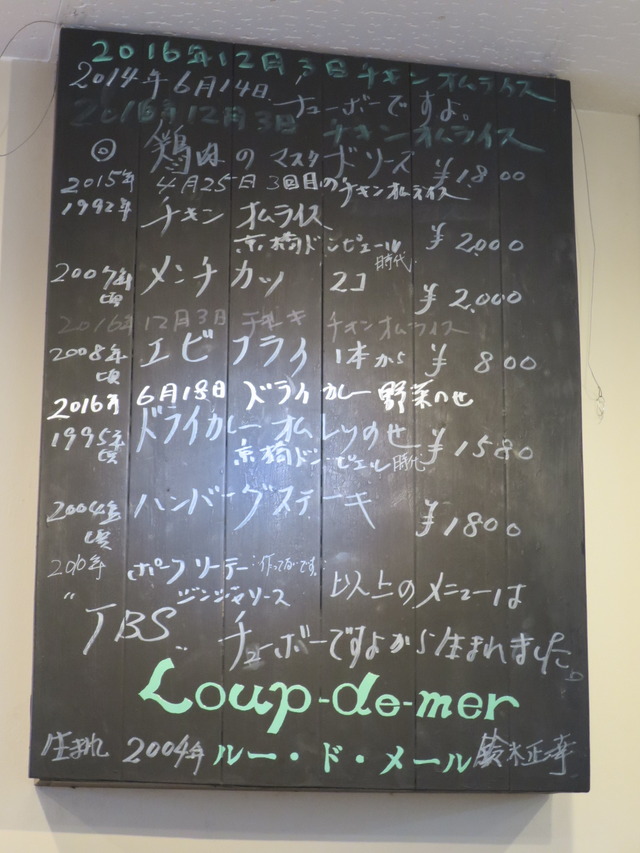 2016年12月3日 チキンオムライス
2014年6月14日 チューボーですよ。
2016年12月3日 チキンオムライス
◎ 鶏肉のマスタードソース ¥1,800
2015年 4月25日 3回目のチキンオムライス
1992年 チキンオムライス ¥2,000
京橋ドンピエール時代
2007年頃 メンチカツ 2コ ¥2,000
2016年12月3日 チキンオムライス
2008年頃 エビフライ 1本から ¥800
2016年 6月18日 ドライカレー野菜のせ
1995年頃 ドライカレーオムレツのせ ¥1580
京橋ドンピエル時代
2004年頃 ハンバーグステーキ ¥1800
2010年 ポークソーテー
ジンジャソース 以上のメニューは
"TBS" チューボーですよから生まれました。
Loup-de-mer
生まれ 2004年 ルー・ド・メール 鈴木正幸